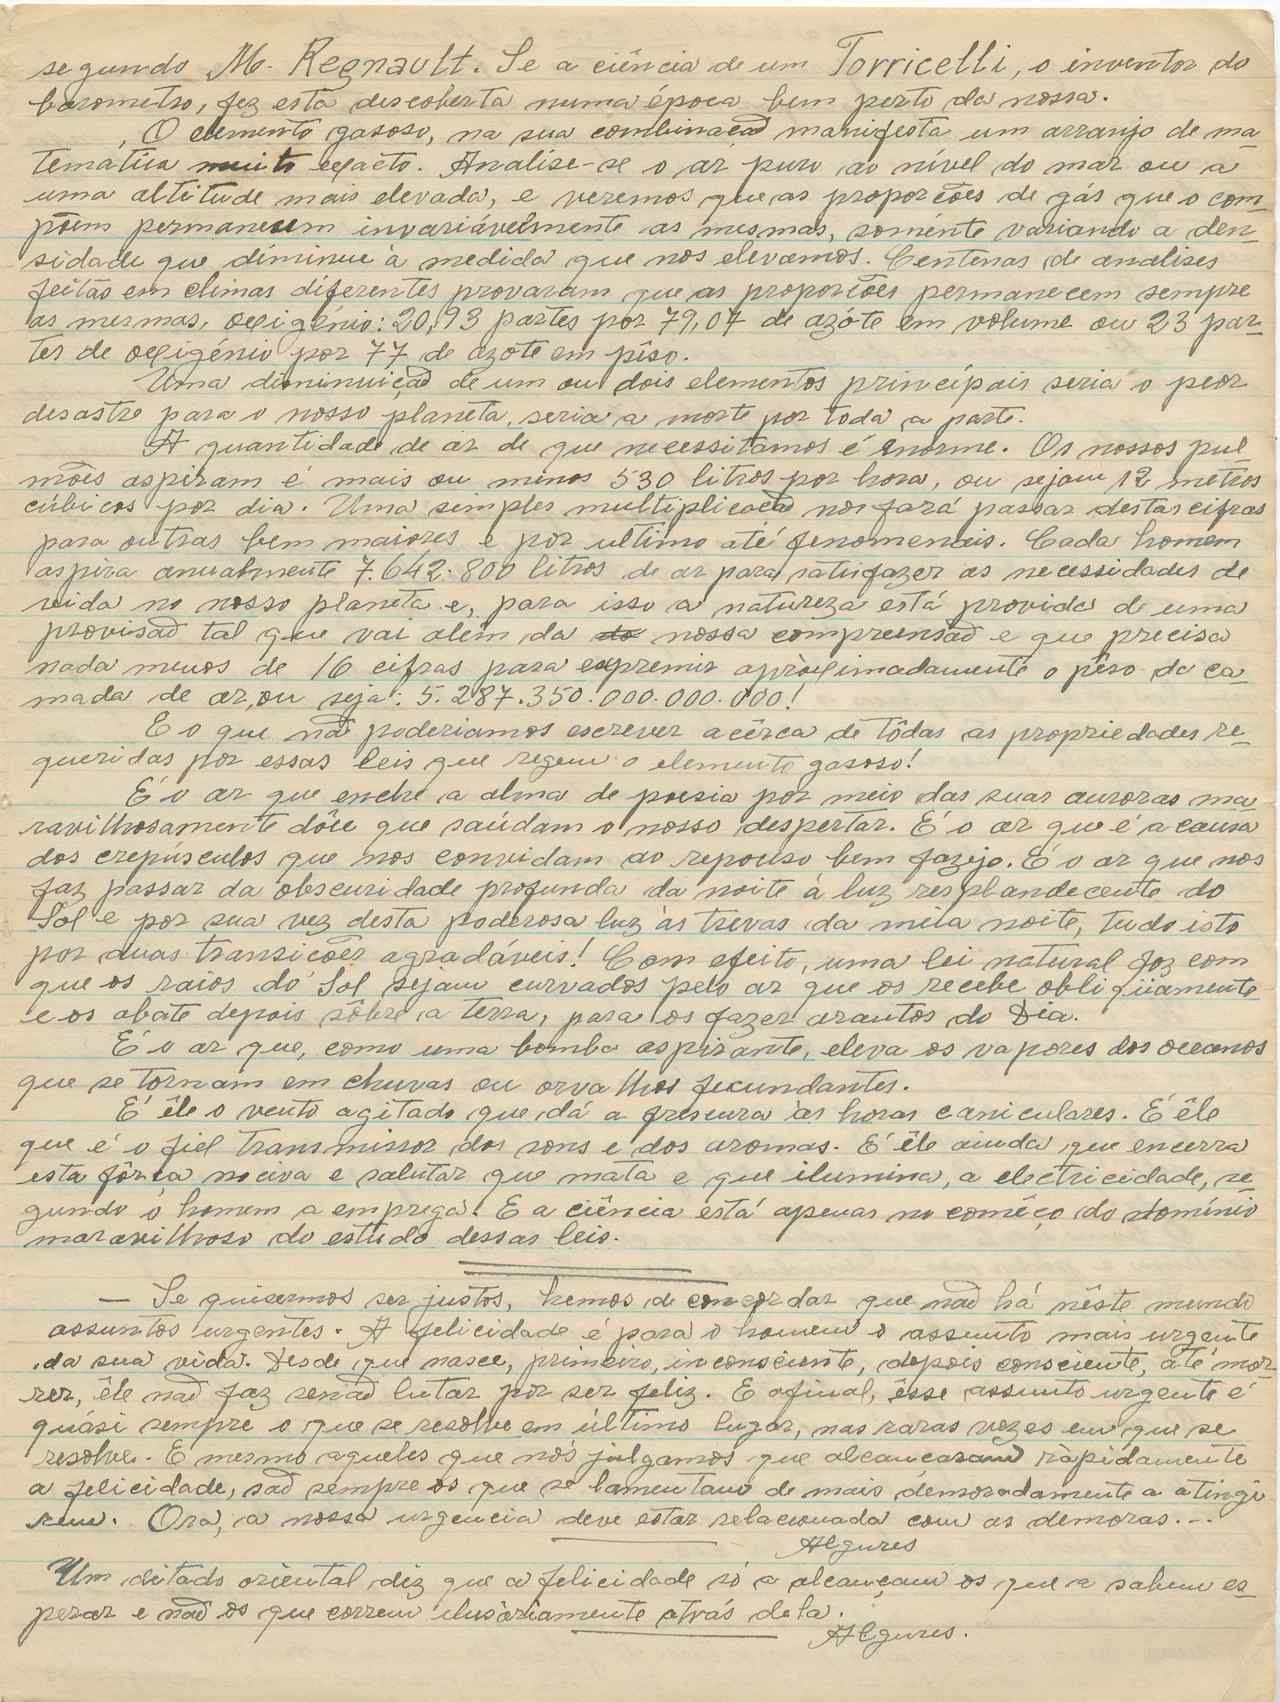 segundo M. Regnault. Se a ciência de um Torricelli, o inventor do
barometro, fez esta descoberta numa época bem perto da nossa.
O elemento gasoso, na sua combinação manifesta um arranjo de ma-
temática muito exacto. Analise-se o ar puro ao nível do mar ou a
uma altitude mais elevada, e veremos que as proporcões de gás que o com-
põem permanecem invariávelmente as mesmas, sómente variando a den-
sidade que diminue à medida que nos elevamos. Centenas de analises
feitas em climas diferentes provaram que as proporcões permanecem sempre
as mesmas, oxigénio: 20,93 partes por 79,07 de azóte em volume ou 23 par-
tes de oxigénio por 77 de azote em pêso.
Uma diminuição de um ou dois elementos principais seria o peor
desastre para o nosso planeta, seria a morte por toda a parte.
A quantidade de ar de que necessitamos é enorme. Os nossos pul
mões aspiram é mais ou menos 530 litros por hora, ou sejam 12 metros
cúbicos por dia. Uma simples multiplicacão nos fará passar destas cifras
para outras bem maiores e por ultimo até fenomenais. Cada homem
aspira anualmente 7.642.800 litros de ar para satisfazer as necessidades de
vida no nosso planeta e, para isso a natureza está provida de uma
provisão tal que vai além da do nossa compreensão e que precisa
nada menos de 16 cifras para expremir apròximadamente o pêso da ca-
mada de ar, ou seja: 5.287.350.000.000.000!
E o que não poderiamos escrever acêrca de tôdas as propriedades re-
queridas por essas leis que regem o elemento gasoso!
É o ar que enche a alma de poesia por meio das suas auroras ma
ravilhosamente dôce que saúdam o nosso despertar. É o ar que é a causa
dos crepúsculos que nos convidam ao repouso bem fazejo. É o ar que nos
faz passar da obscuridade profunda da noite à luz resplandecente do
Sol e por sua vez desta poderosa luz às trevas da meia noite, tudo isto
por duas transicões agradáveis! Com efeito, uma lei natural faz com
que os raios do Sol sejam curvados pelo ar que os recebe obliqüamente
e os abate depois sôbre a terra, para os fazer arautos do Dia.
É o ar que, como uma bomba aspirante, eleva os vapores dos oceanos
que se tornam em chuvas ou orvalhos fecundantes.
É êle o vento agitado que dá a frescura às horas caniculares. É êle
que é o fiel transmissor dos sons e dos aromas. É êle ainda que encerra
esta fôrça nociva e salutar que mata e que ilumina, a electricidade, se-
gundo o homem a emprega! E a ciência está apenas no comêço do domínio
maravilhoso do estudo dessas leis.
— Se quisermos ser justos, hemos de concordar que não há nêste mundo
assuntos urgentes. A felicidade é para o homem o assunto mais urgente
da sua vida. Desde que nasce, primeiro, inconsciente, depois consciente, até mor
rer, êle não faz senão lutar por ser feliz. E afinal, êsse assunto urgente é
quási sempre o que se resolve em último lugar, nas raras vezes em que se
resolve. E mesmo aqueles que nós julgamos que alcancaram ràpidamente
a felicidade, são sempre os que se lamentam de mais demoradamente a atingi
rem. Ora, a nossa urgencia deve estar relacionada com as demoras...
Algures
Um ditado oriental diz que a felicidade só a alcançam os que a sabem es-
perar e não os que correm ilusóriamente atrás dela.
Algures.